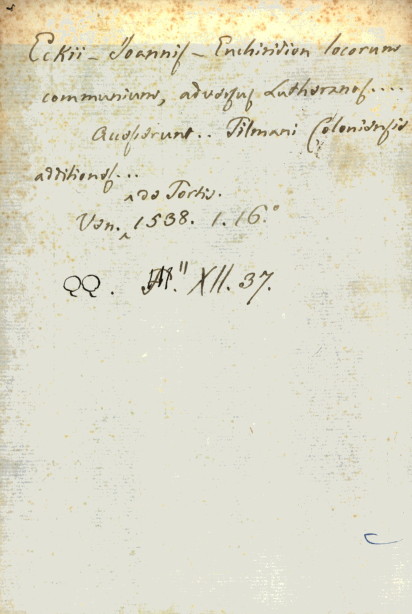 Eckii - Joannis - Enchiridion locorum
communium, adversus Lutheranos....
Accesserunt.. Tilmani Coloniensis
additiones...
^ de Tortis.
Ven. 1538. 1. 16.°
QQ. XII. 37.